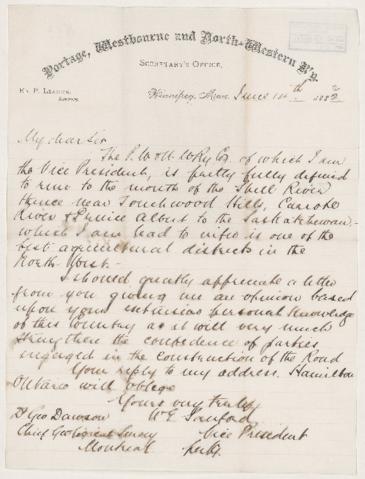 Portage, Westbourne and North-Western R'y.
Secretary's Office,
Winnipeg, Man. June 1882
My dear Sir
The P. W & N. W Ry Co. of which I am
the Vice President, is partly fully defined
to run to the mouth of the Shell River
thence near Touchwood Hills, Carrot
River & Prince Albert to the Saskatchewan,-
which I am lead to infer is one of the
best agricultural districts in the
North West.-
I should greatly appreciate a letter
from you giving me an opinion based
upon your extensive personal knowledge
of this Country as it will very much
strengthen the confidence of parties
engaged in the construction of the Road
Your reply to my address. Hamilton
Ontario will oblige
Yours very truly
Dr Geo Dawson W E Sanford
Chief Geological Survey Vice President
Montreal